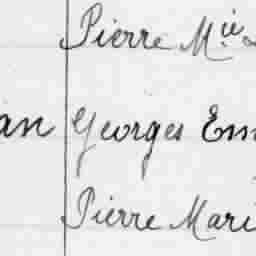 Pierre Mie
an Georges Em
Pierre Mari